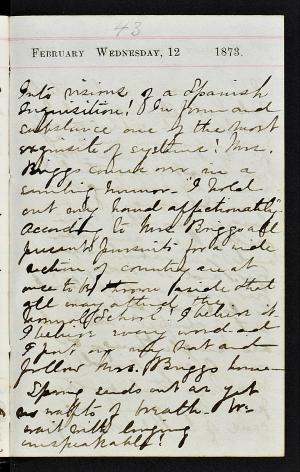 43
FEBRUARY WEDNESDAY, 12 1873.
Into visions of a Spanish
Inquisition! In form and
substance one of the most
exquisite of systems! Mrs.
Briggs came over in a
smiling humor. I hold
out my hand affectionately.
According to Mrs Briggs all
present pursuits for a wide
section of country are at
once to be thrown aside that
all may attend the
School. I believe it
I believe every word and
I put on my hat and
follow Mrs. Briggs home
Spring sends out as yet
no waifts of breath. We
wait with longing
unspeakable!